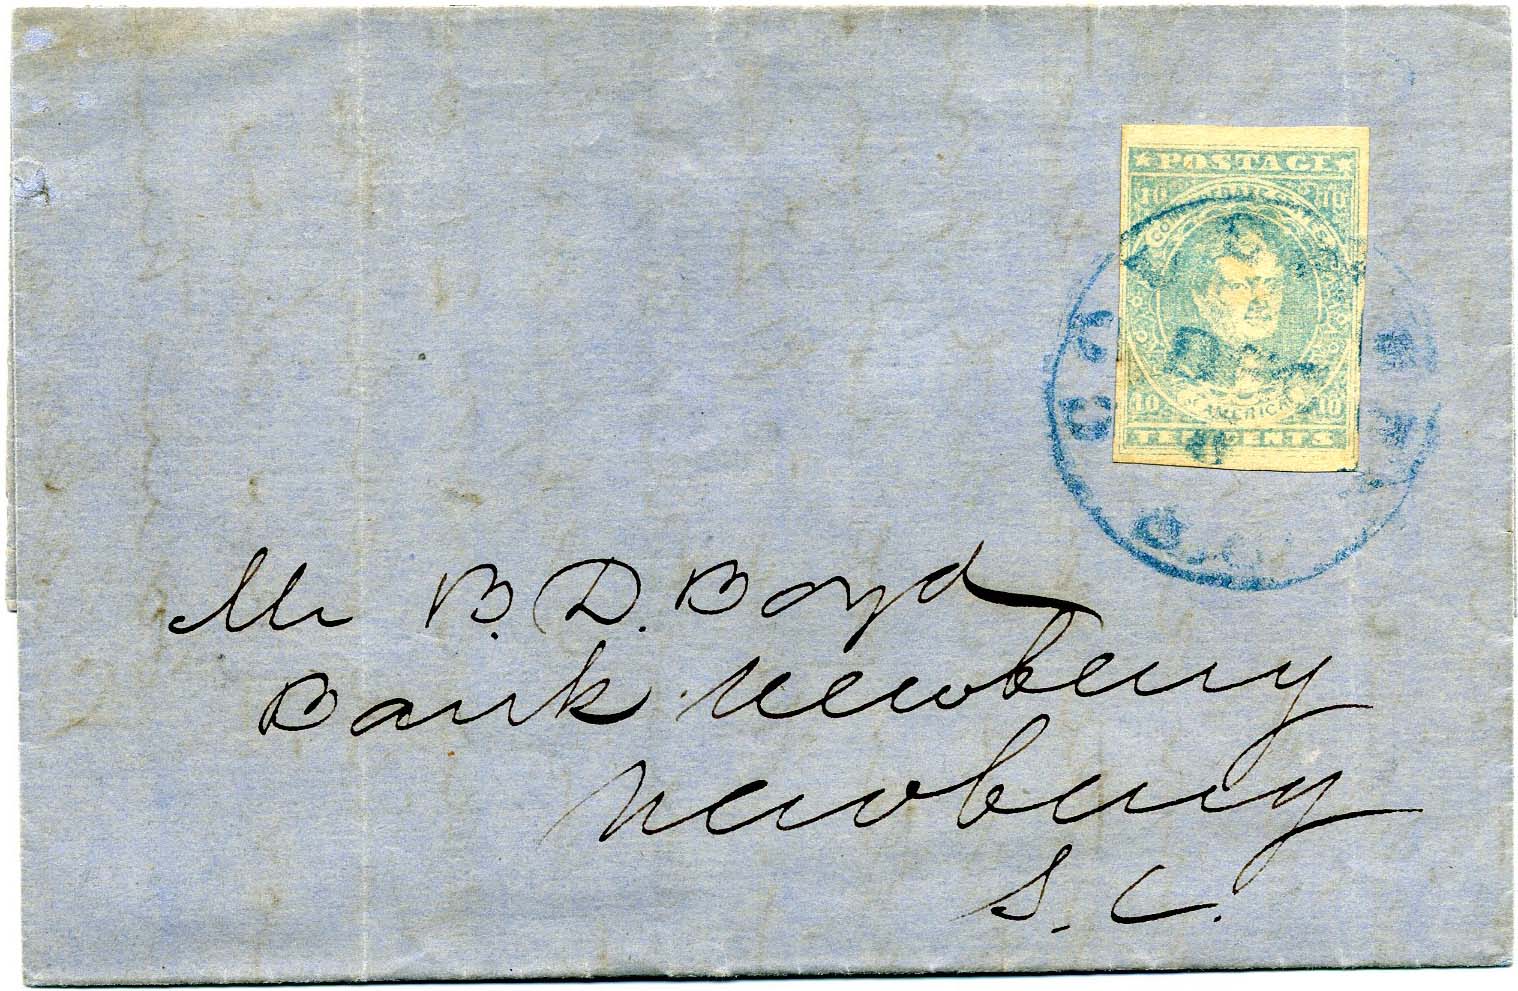 ★ POSTAGE ★
10 10
CONFEDERATE STATES
OF AMERICA
10 10
TEN CENTS
DEC
Mr B. D. Boyd
Bank Newberry
Newberry
S. C.